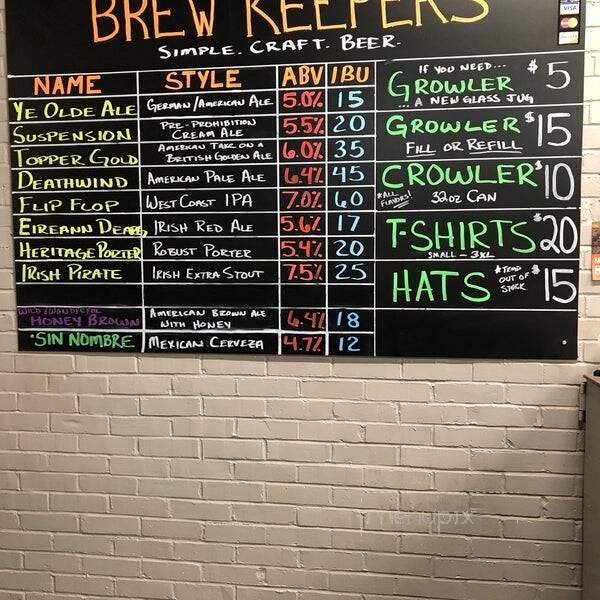 BREW KEEPERS
SIMPLE. CRAFT. BEER.
VISA
NAME STYLE ABV IBU
YE OLDE ALE GERMAN/AMERICAN ALE 5.0% 15
SUSPENSION PRE-PROHIBITION CREAM ALE 5.5% 20
TOPPER GOLD AMERICAN TAKE ON A BRITISH GOLDEN ALE 6.0% 35
DEATHWIND AMERICAN PALE ALE 6.4% 45
FLIP FLOP WEST COAST IPA 7.0% 60
EIREANN IRISH RED ALE 5.6% 17
HERITAGE PORTER ROBUST PORTER 5.4% 20
IRISH PIRATE IRISH EXTRA STOUT 7.5% 25
WILD & WONDERFUL HONEY BROWN AMERICAN BROWN ALE WITH HONEY 6.4% 18
*SIN NOMBRE MEXICAN CERVEZA 4.7% 12
IF YOU NEED...
GROWLER $5
...A NEW GLASS JUG
GROWLER $15
FILL OR REFILL
CROWLER $10
*ALL FLAVORS! 32oz CAN
T-SHIRTS $20
SMALL - 3XL
HATS *TEMP OUT OF STOCK $15
menupix